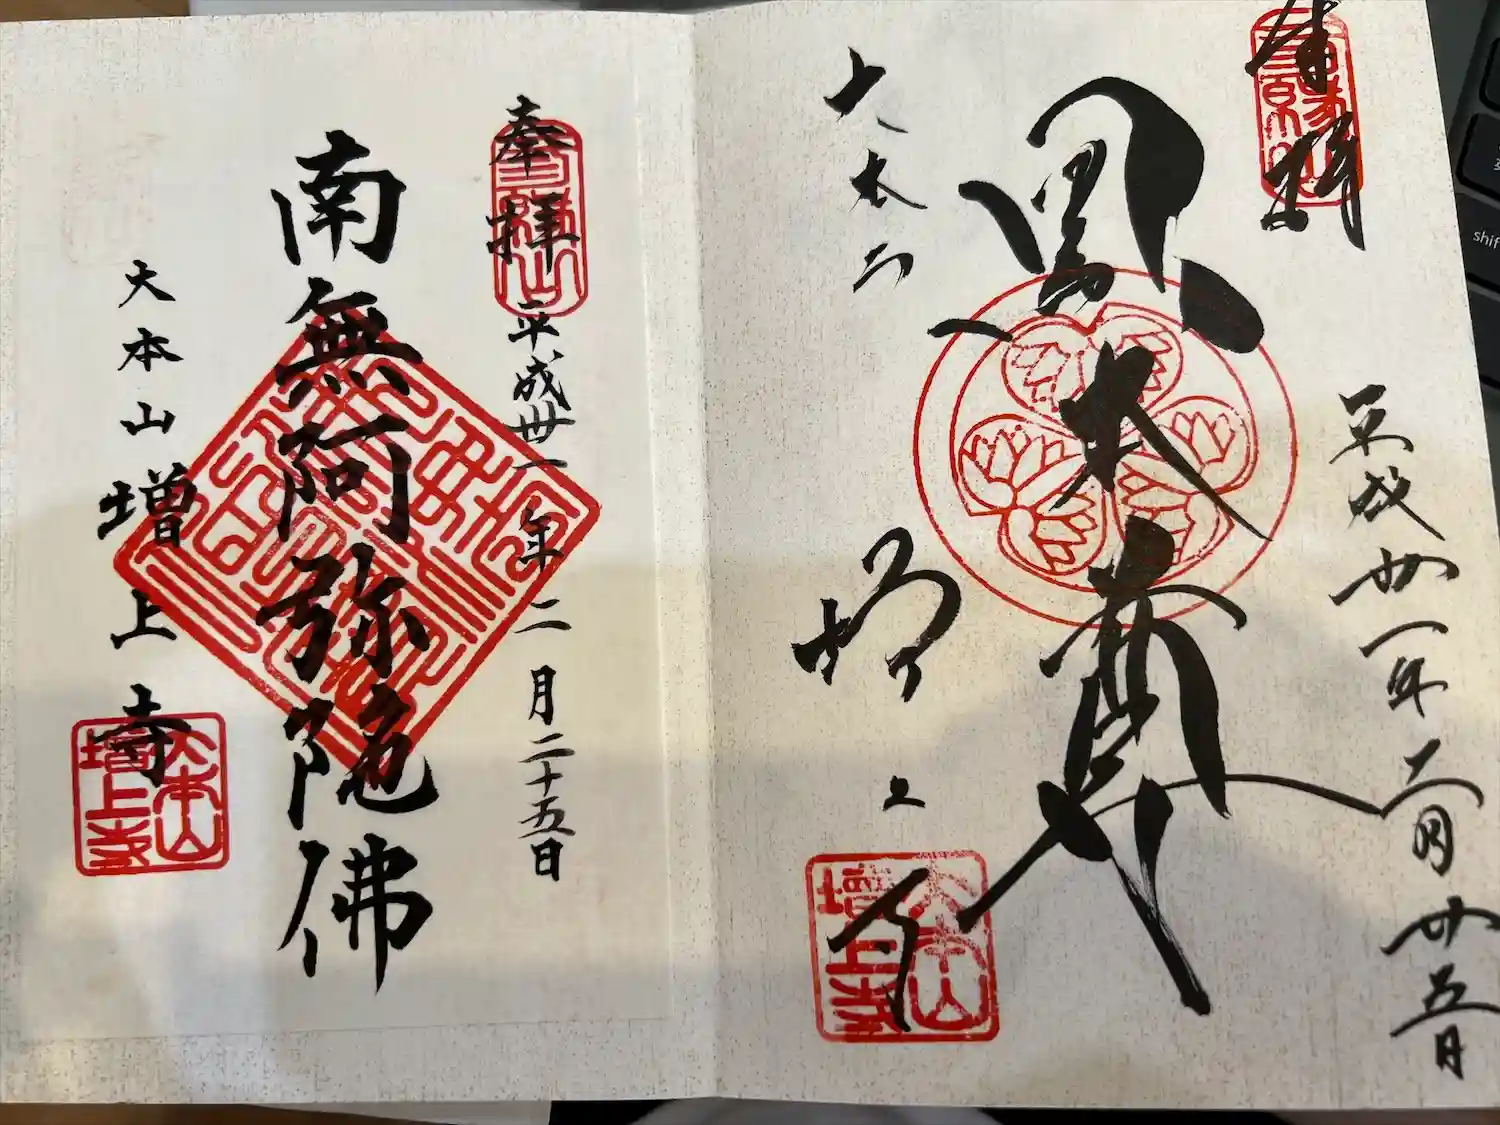 奉拝
平成卅一年二月廿五日
黒本尊
大本山
増上寺
大本山
増上寺
奉拝
平成卅一年二月二十五日
南無阿弥陀佛
大本山増上寺
大本山
増上寺
shif